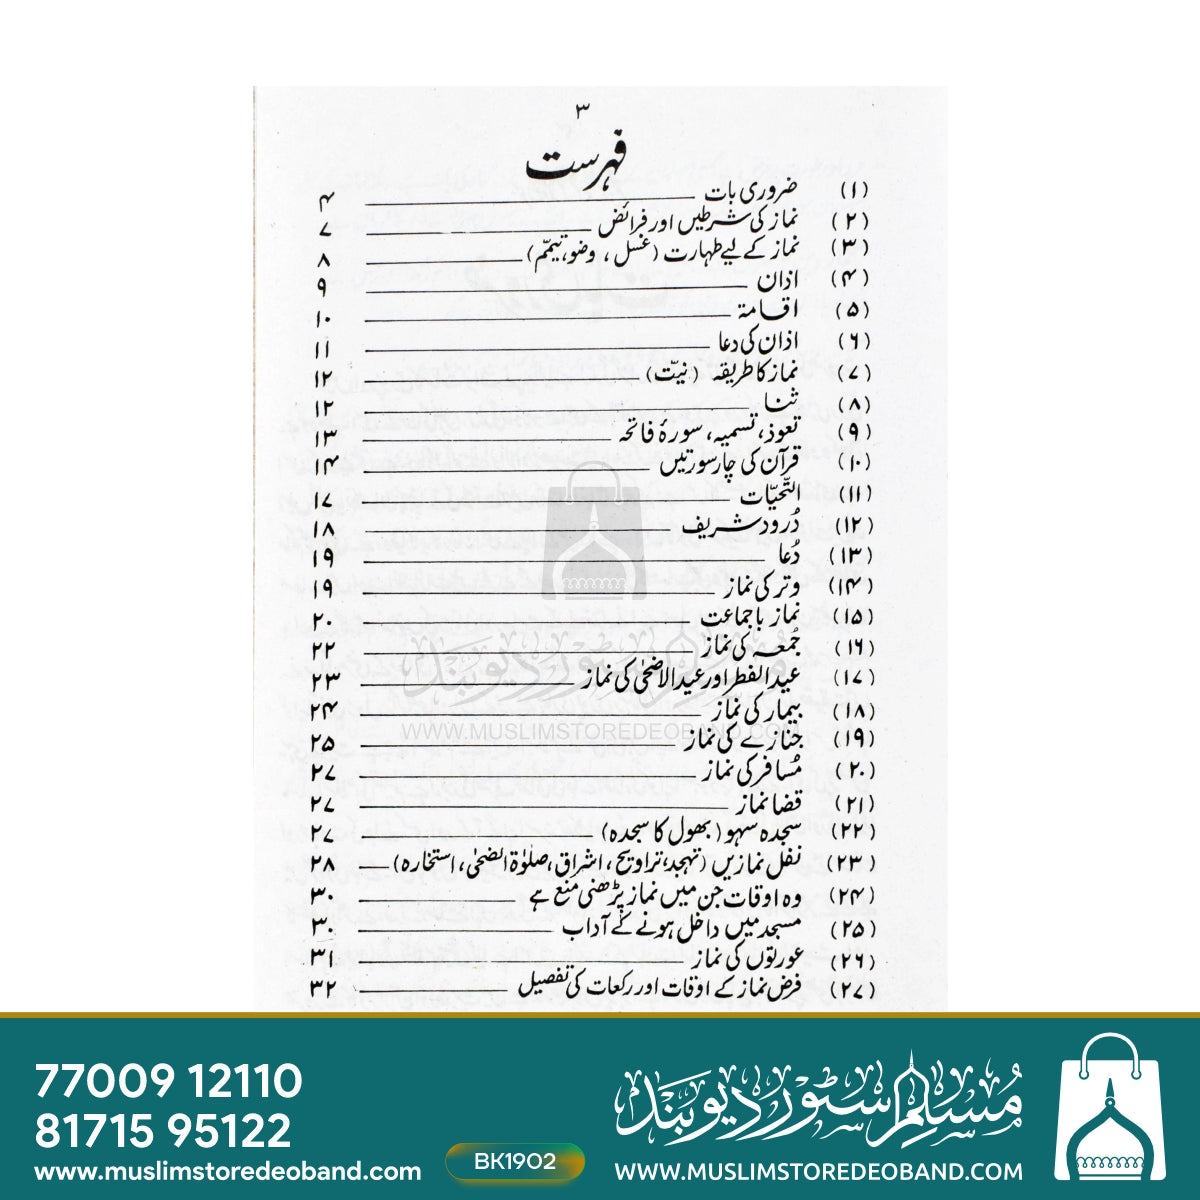 ۳
فہرست
(۱) ضروری بات ۴
(۲) نماز کی شرطیں اور فرائض ۷
(۳) نماز کے لیے طہارت (غسل ، وضو، تیمّم) ۸
(۴) اذان ۹
(۵) اقامة ۱۰
(۶) اذان کی دعا ۱۱
(۷) نماز کا طریقہ (نیّت) ۱۲
(۸) ثنا ۱۲
(۹) تعوذ، تسمیہ، سورۂ فاتحہ ۱۳
(۱۰) قرآن کی چار سورتیں ۱۴
(۱۱) التّحیّات ۱۷
(۱۲) دُرود شریف ۱۸
(۱۳) دُعا ۱۹
(۱۴) وتر کی نماز ۱۹
(۱۵) نماز باجماعت ۲۰
(۱۶) جُمعہ کی نماز ۲۲
(۱۷) عید الفطر اور عید الاضحیٰ کی نماز ۲۳
(۱۸) بیمار کی نماز ۲۴
(۱۹) جنازے کی نماز ۲۵
(۲۰) مُسافر کی نماز ۲۷
(۲۱) قضا نماز ۲۷
(۲۲) سجدہ سہو (بھول کا سجدہ) ۲۷
(۲۳) نفل نمازیں (تہجد، تراویح ، اشراق، صلوٰة الضحیٰ، استخارہ) ۲۸
(۲۴) وہ اوقات جن میں نماز پڑھنی منع ہے ۳۰
(۲۵) مسجد میں داخل ہونے کے آداب ۳۰
(۲۶) عورتوں کی نماز ۳۱
(۲۷) فرض نماز کے اوقات اور رکعات کی تفصیل ۳۲
مسلم سٹور دیوبند
WWW.MUSLIMSTOREDEOBAND.COM
77009 12110
81715 95122
www.muslimstoredeoband.com
BK1902
مُسلم سٹور دیوبند
WWW.MUSLIMSTOREDEOBAND.COM